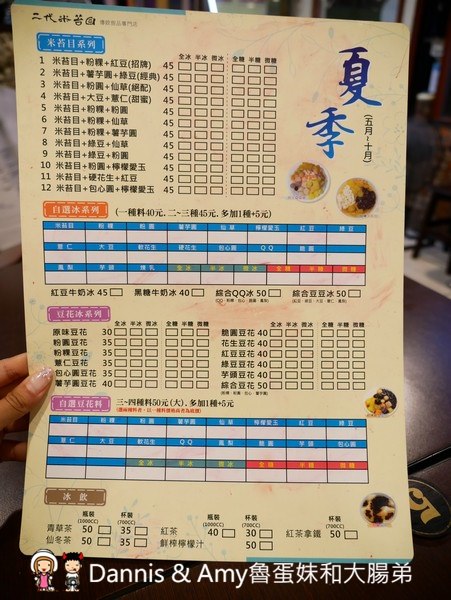 二代米苔目 傳統甜品專門店
夏季
(五月~十月)
米苔目系列
全冰 半冰 微冰 全糖 半糖 微糖
1 米苔目+粉粿+紅豆(招牌) 45
2 米苔目+薯芋圓+綠豆(經典) 45
3 米苔目+粉圓+仙草(絕配) 45
4 米苔目+大豆+薏仁(甜蜜) 45
5 米苔目+粉粿+粉圓 45
6 米苔目+粉粿+仙草 45
7 米苔目+粉粿+薯芋圓 45
8 米苔目+綠豆+仙草 45
9 米苔目+綠豆+粉圓 45
10 米苔目+粉圓+檸檬愛玉 45
11 米苔目+硬花生+紅豆 45
12 米苔目+包心圓+檸檬愛玉 45
自選冰系列 (一種料40元,二~三種45元,多加1種+5元)
米苔目 粉粿 粉圓 薯芋圓 仙草 檸檬愛玉 紅豆 綠豆
薏仁 大豆 軟花生 硬花生 包心圓 QQ 脆圓
鳳梨 芋頭 煉乳 全冰 半冰 微冰 全糖 半糖 微糖
紅豆牛奶冰 45 黑糖牛奶冰 40 綜合QQ冰 50 綜合豆豆冰 50
豆花冰系列
全冰 半冰 微冰 全糖 半糖 微糖 全冰 半冰 微冰 全糖 半糖 微糖
原味豆花 30 脆圓豆花 40
粉圓豆花 35 花生豆花 40
粉粿豆花 35 紅豆豆花 40
薏仁豆花 35 綠豆豆花 40
包心圓豆花 40 芋頭豆花 40
薯芋圓豆花 40 綜合豆花 50
自選豆花料 三~四種料50元(大),多加1種+5元
米苔目 粉粿 粉圓 薯芋圓 仙草 檸檬愛玉 紅豆 綠豆
薏仁 大豆 軟花生 QQ 鳳梨 脆圓 芋頭 包心圓
全冰 半冰 微冰 全糖 半糖 微糖
冰飲
瓶裝 (1000CC) 杯裝 (700CC) 瓶裝 (1000CC) 杯裝 (700CC) 杯裝 (700CC)
青草茶 50 35 紅茶 40 30 紅茶拿鐵 50
仙冬茶 50 35 鮮榨檸檬汁 50
Dannis & Amy魯蛋妹和大腸弟